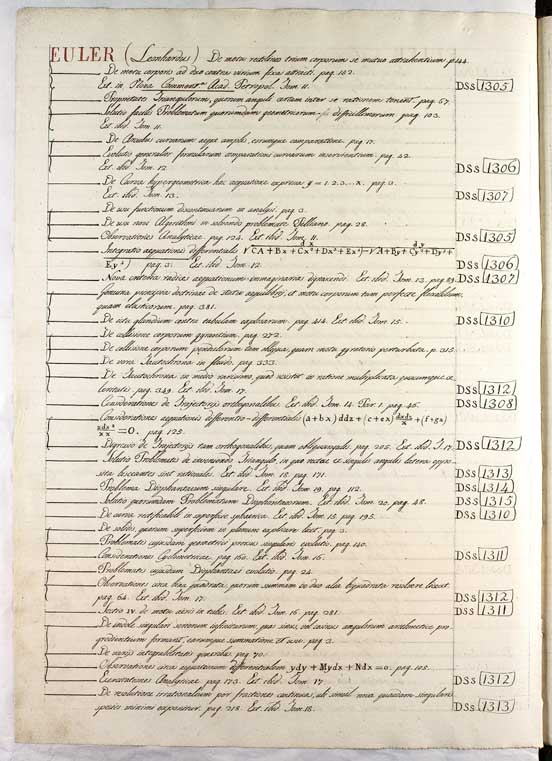 EULER (Leonhardus) De motu rectilineo trium corporum se mutuo attrahentium p. 144.
De motu corporis ad duo centra virium fixa attracti. pag. 152.
Ext. in Novis Comment. Acad. Petropol. Tom. 11. DSs 1305
Proprietates Triangulorum, quorum anguli certam inter se rationem tenent. pag. 67.
Solutio facilis Problematum quorumdam geometricorum difficillimorum. pag. 103.
Ext. ibid. Tom. 11.
De Arcubus curvarum aeque amplis, eorumque comparatione. pag. 17.
Evolutio generalis formularum comparationi curvarum inservientium. pag. 42.
Ext. ibid. Tom. 12. DSs 1306
De Curva hypergeometrica hac aequatione expressa y = 1. 2. 3... x. pag. 3.
Ext. ibid. Tom. 13. DSs 1307
De usu functionum discontinuarum in analysi. pag. 3.
De usu novi Algorithmi in solvendo problemate Pelliano. pag. 28.
Observationes Analyticae. pag. 124. Ext. ibid. Tom. 11. DSs 1305
Integratio aequationis differentialis
pag. 3. Ext. ibid. Tom. 12. DSs 1306
Nova criteria radices aequationum imaginarias dignoscendi. Ext. ibid. Tom. 13. pag. 89. DSs 1307
Genuina principia doctrinae de statu aequilibrii, et motu corporum tam perfecte flexibilium,
quam elasticorum. pag. 381.
De ictu glandium contra tabulam explosarum. pag. 414. Ext. ibid. Tom. 15. DSs 1310
De collisione corporum gyrantium. pag. 272.
De collisione corporum pendulorum tam obliqua, quam motu gyratorio perturbata. p. 315.
De nova Tautochrona in fluido. pag. 333.
De Tautochrona in medio rarissimo, quod resistit in ratione multiplicata quacumque ce-
leritatis. pag. 349. Ext. ibid. Tom. 17. DSs 1312
Considerationes de Trajectoriis orthogonalibus. Ext. ibid. Tom. 14. Par. 1. pag. 46. DSs 1308
Considerationes aequationis differentio-differentialis (a+bx) ddz + (c+ex) dxdz/x + (f+gx)
zdx²/xx = 0. pag. 125.
Digressio de Trajectoriis tam orthogonalibus, quam obliquangulis. pag. 205. Ext. ibid. T. 17. DSs 1312
Solutio Problematis de inveniendo Triangulo, in quo rectae ex singulis angulis latera oppo-
sita bisecantes sint rationales. Ext. ibid. Tom. 18. pag. 171. DSs 1313
Problema Diophantaeum singulare. Ext. ibid. Tom. 19. pag. 112. DSs 1314
Solutio quorumdam Problematum Diophantaeorum. Ext. ibid. Tom. 20. pag. 48. DSs 1315
De curva rectificabili in superficie sphaerica. Ext. ibid. Tom. 15. pag. 195. DSs 1310
De solidis, quorum superficiem in planum explicare licet. pag. 3.
Problematis cujusdam geometrici prorsus singularis evolutio. pag. 140.
Considerationes Cyclometricae. pag. 160. Ext. ibid. Tom. 16. DSs 1311
Problematis cujusdam Diophantaei evolutio. pag. 24.
Observationes circa bina biquadrata, quorum summam in duo alia biquadrata resolvere liceat.
pag. 64. Ext. ibid. Tom. 17. DSs 1312
Sectio IV. de motu aëris in tubis. Ext. ibid. Tom. 16. pag. 281. DSs 1311
De eximio singulari serierum infinitarum, quae sinus, vel cosinus angulorum arithmetice pro-
gredientium formant, earumque summatione et usu. pag. 3.
De variis integrabilitatis generibus. pag. 70.
Observationes circa aequationem differentialem ydy + Mydx + Ndx = 0. pag. 105.
Exercitationes Analyticae. pag. 173. Ext. ibid. Tom. 17. DSs 1312
De resolutione irrationalium per fractiones continuas, ubi simul nova quaedam singularis
species minimi exponitur. pag. 218. Ext. ibid. Tom. 18. DSs 1313